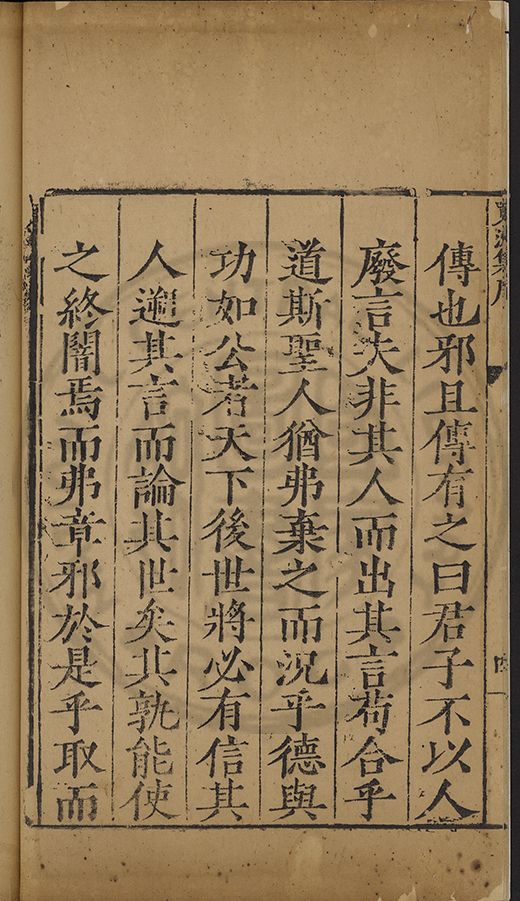 傳也邪且傳有之曰君子不以人
廢言夫非其人而出其言苟合乎
道斯聖人猶弗棄之而況乎德與
功如公者天下後世將必有信其
人遡其言而論其世矣其孰能使
之終闇焉而弗章邪於是乎取而